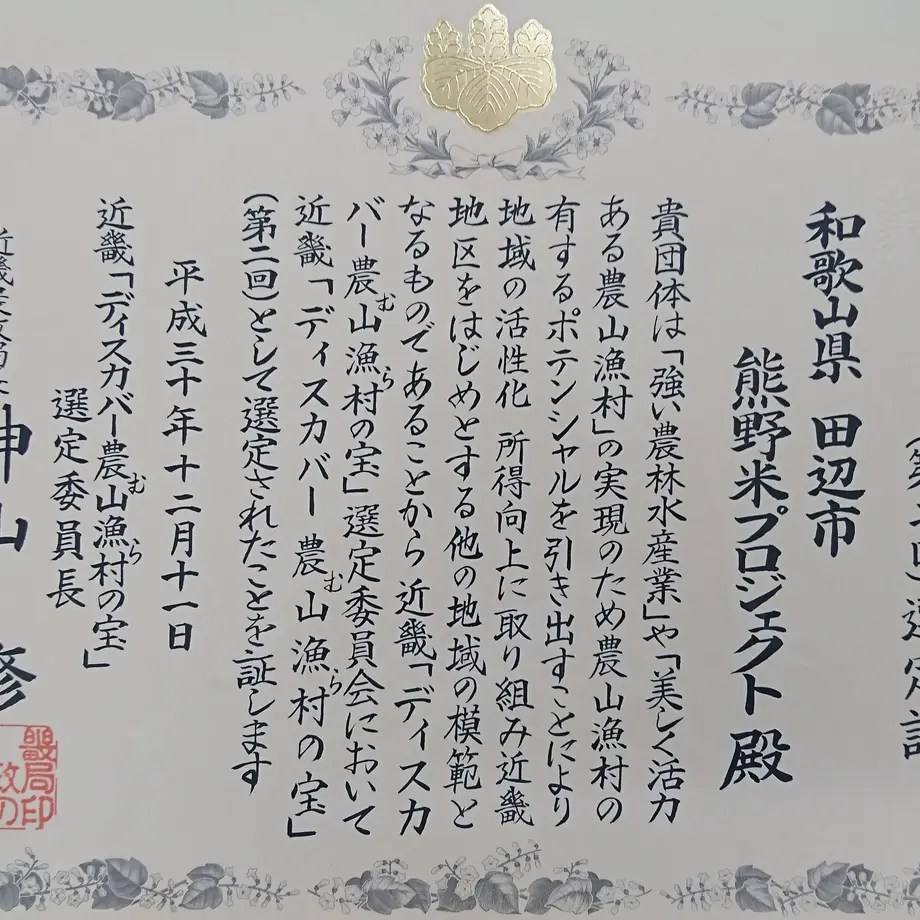 選定証
和歌山県 田辺市
熊野米プロジェクト 殿
貴団体は「強い農林水産業」や「美しく活力
ある農山漁村」の実現のため農山漁村の
有するポテンシャルを引き出すことにより
地域の活性化 所得向上に取り組み近畿
地区をはじめとする他の地域の模範と
なるものであることから 近畿「ディスカ
バー農山漁村の宝」選定委員会において
むら
近畿「ディスカバー 農山漁村の宝」
むら
(第二回)として選定されたことを証します
平成三十年十二月十一日
近畿「ディスカバー農山漁村の宝」
むら
選定委員長
神山 修
局印